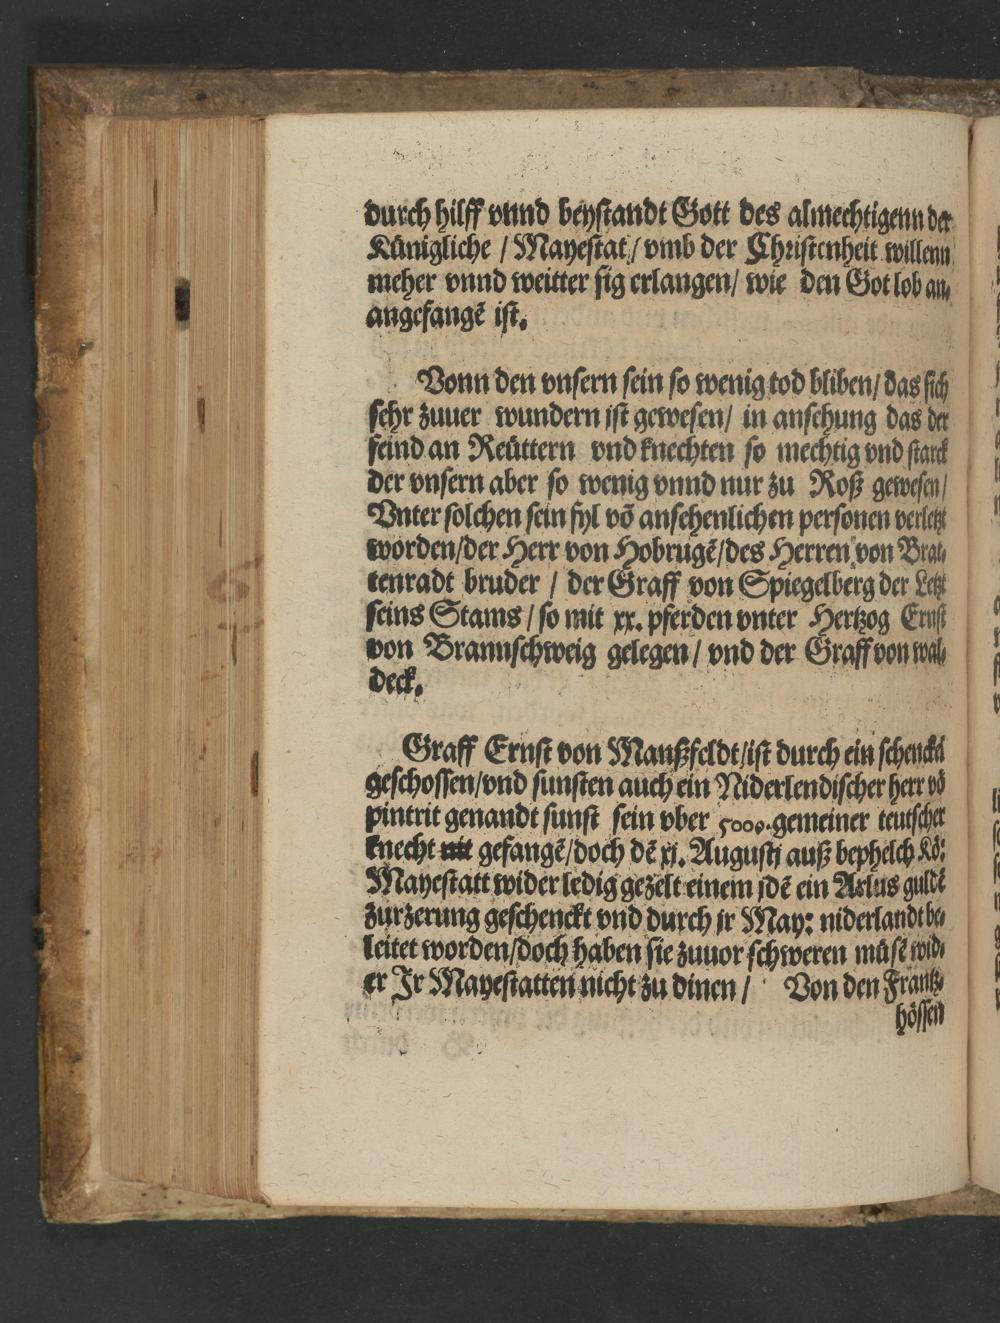 durch hilff vnnd beystandt Gott des almechtigenn der
Künigliche / Mayestat / vmb der Christenheit willenn
meher vnnd weitter sig erlangen / wie den Got lob an⸗
angefangẽ ist.
Vonn den vnsern sein so wenig tod bliben / das sich
sehr zuuer wundern ist gewesen / in ansehung das der
feind an Reüttern vnd knechten so mechtig vnd starck
der vnsern aber so wenig vnnd nur zu Roß gewesen /
Vnter solchen sein fyl võ ansehenlichen personen verletzt
worden / der Herr von Hobrugẽ / des Herren von Brat⸗
tenradt bruder / der Graff von Spiegelberg der Letzt
seins Stams / so mit xx. pferden vnter Hertzog Ernst
von Brannschweig gelegen / vnd der Graff von wal⸗
deck.
Graff Ernst von Manßfeldt / ist durch ein schenckel
geschossen / vnd sunsten auch ein Niderlendischer herr võ
pintrit genandt sunst sein vber 5000. gemeiner teutscher
knecht mit gefangẽ / doch dẽ xj. Augustj auß bephelch Kö:
Mayestatt wider ledig gezelt einem jdẽ ein guldẽ
zurzerung geschenckt vnd durch jr May: niderlandt be⸗
leitet worden / doch haben sie zuuor schweren müsẽ wid⸗
er Jr Mayestatten nicht zu dinen / Von den Frantz⸗
hössen